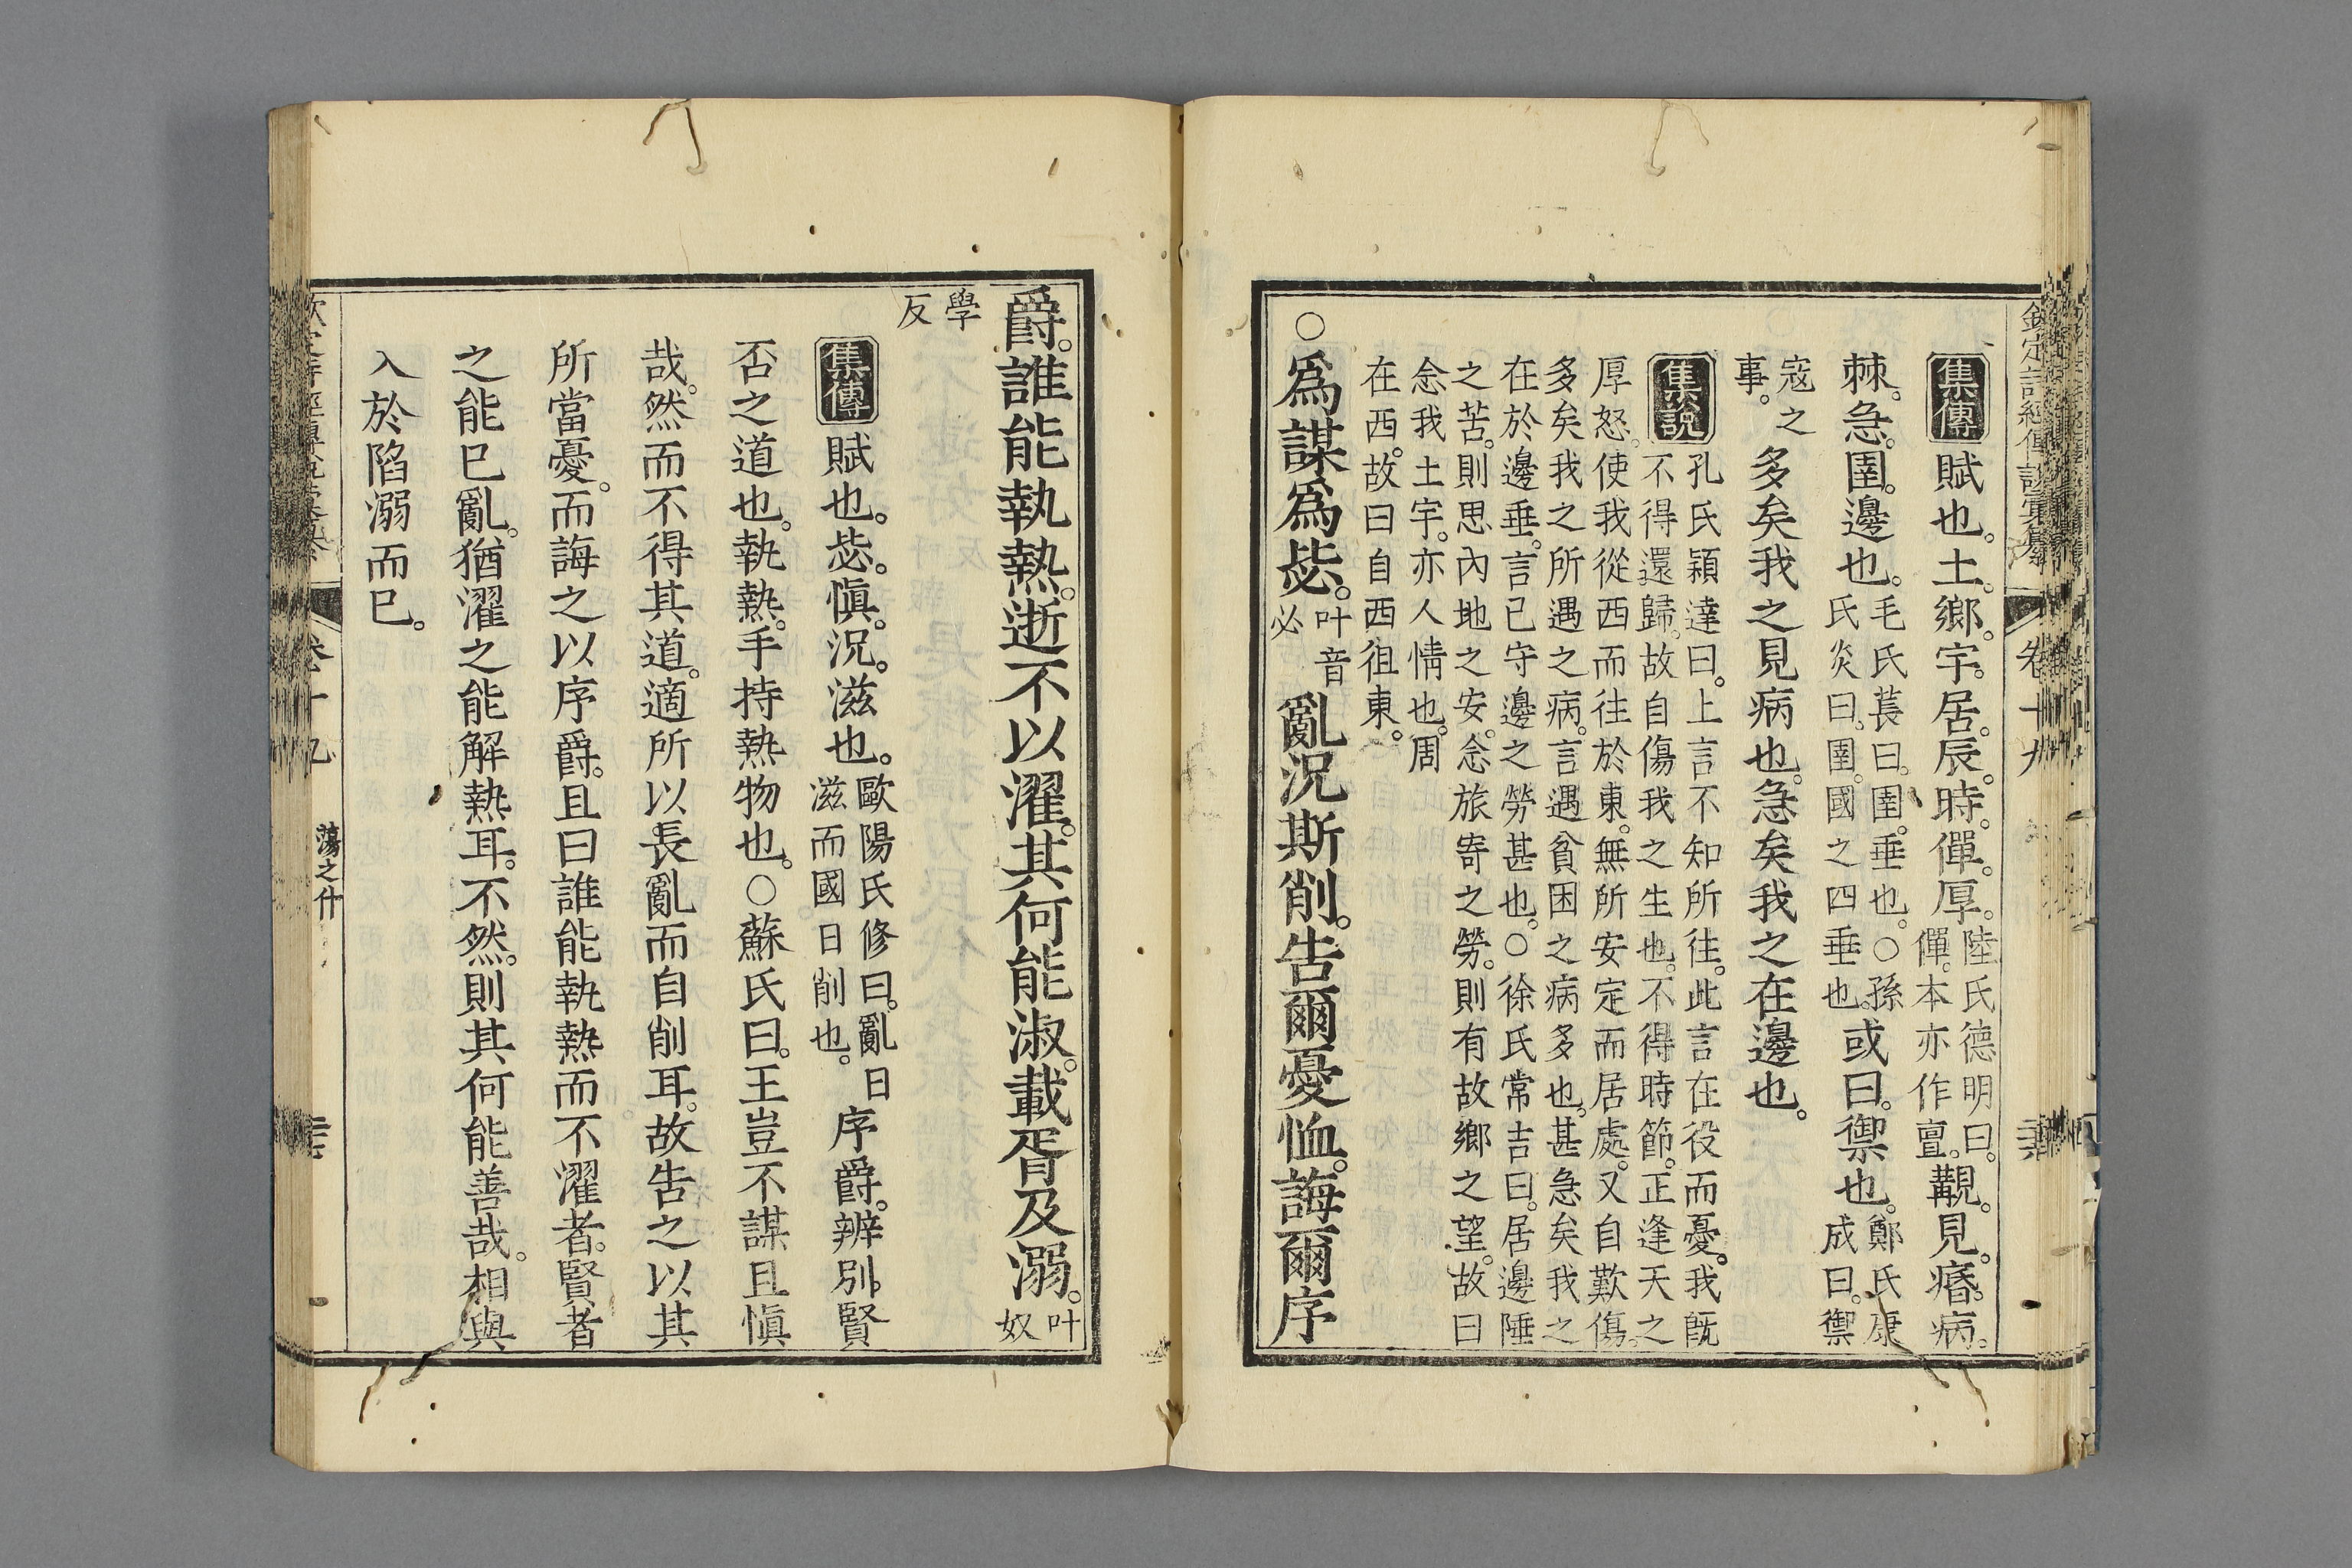 欽定詩經傳說彙纂 卷十九
集傳 賦也。土。鄉。宇。居。辰。時。僤。厚。陸氏德明曰。僤。本亦作亶。覯。見。痻。病。
棘。急。圉。邊也。毛氏萇曰。圉。垂也。○孫氏炎曰。圉。國之四垂也。或曰。禦也。鄭氏康成曰。禦
寇之事。多矣我之見病也。急矣我之在邊也。
集說 孔氏穎達曰。上言不知所往。此言在役而憂。我既
不得還歸。故自傷我之生也。不得時節。正逢天之
厚怒。使我從西而往於東。無所安定而居處。又自歎傷。
多矣我之所遇之病。言遇貧困之病多也。甚急矣我之
在於邊垂。言已守邊之勞甚也。○徐氏常吉曰。居邊陲
之苦。則思內地之安。念旅寄之勞。則有故鄉之望。故曰
念我土宇。亦人情也。周
在西。故曰自西徂東。
○爲謀爲毖。叶音必亂況斯削。告爾憂恤。誨爾序
爵。誰能執熱。逝不以濯。其何能淑。載胥及溺。叶奴
學反
集傳 賦也。毖。愼。況。滋也。歐陽氏修曰。亂日滋而國日削也。序爵。辨別賢
否之道也。執熱。手持熱物也。○蘇氏曰。王豈不謀且愼
哉。然而不得其道。適所以長亂而自削耳。故告之以其
所當憂。而誨之以序爵。且曰誰能執熱而不濯者。賢者
之能已亂。猶濯之能解熱耳。不然。則其何能善哉。相與
入於陷溺而已。
卷十九 蕩之什